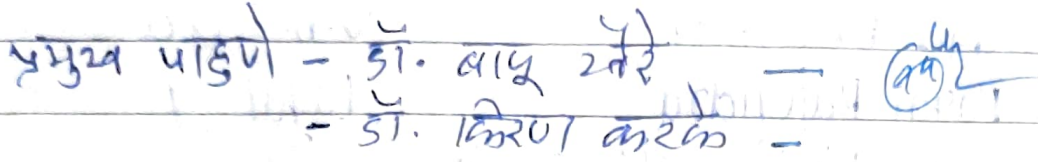 प्रमुख पाहुणे - डॉ. बापू खैरे -
- डॉ. किरण करके -